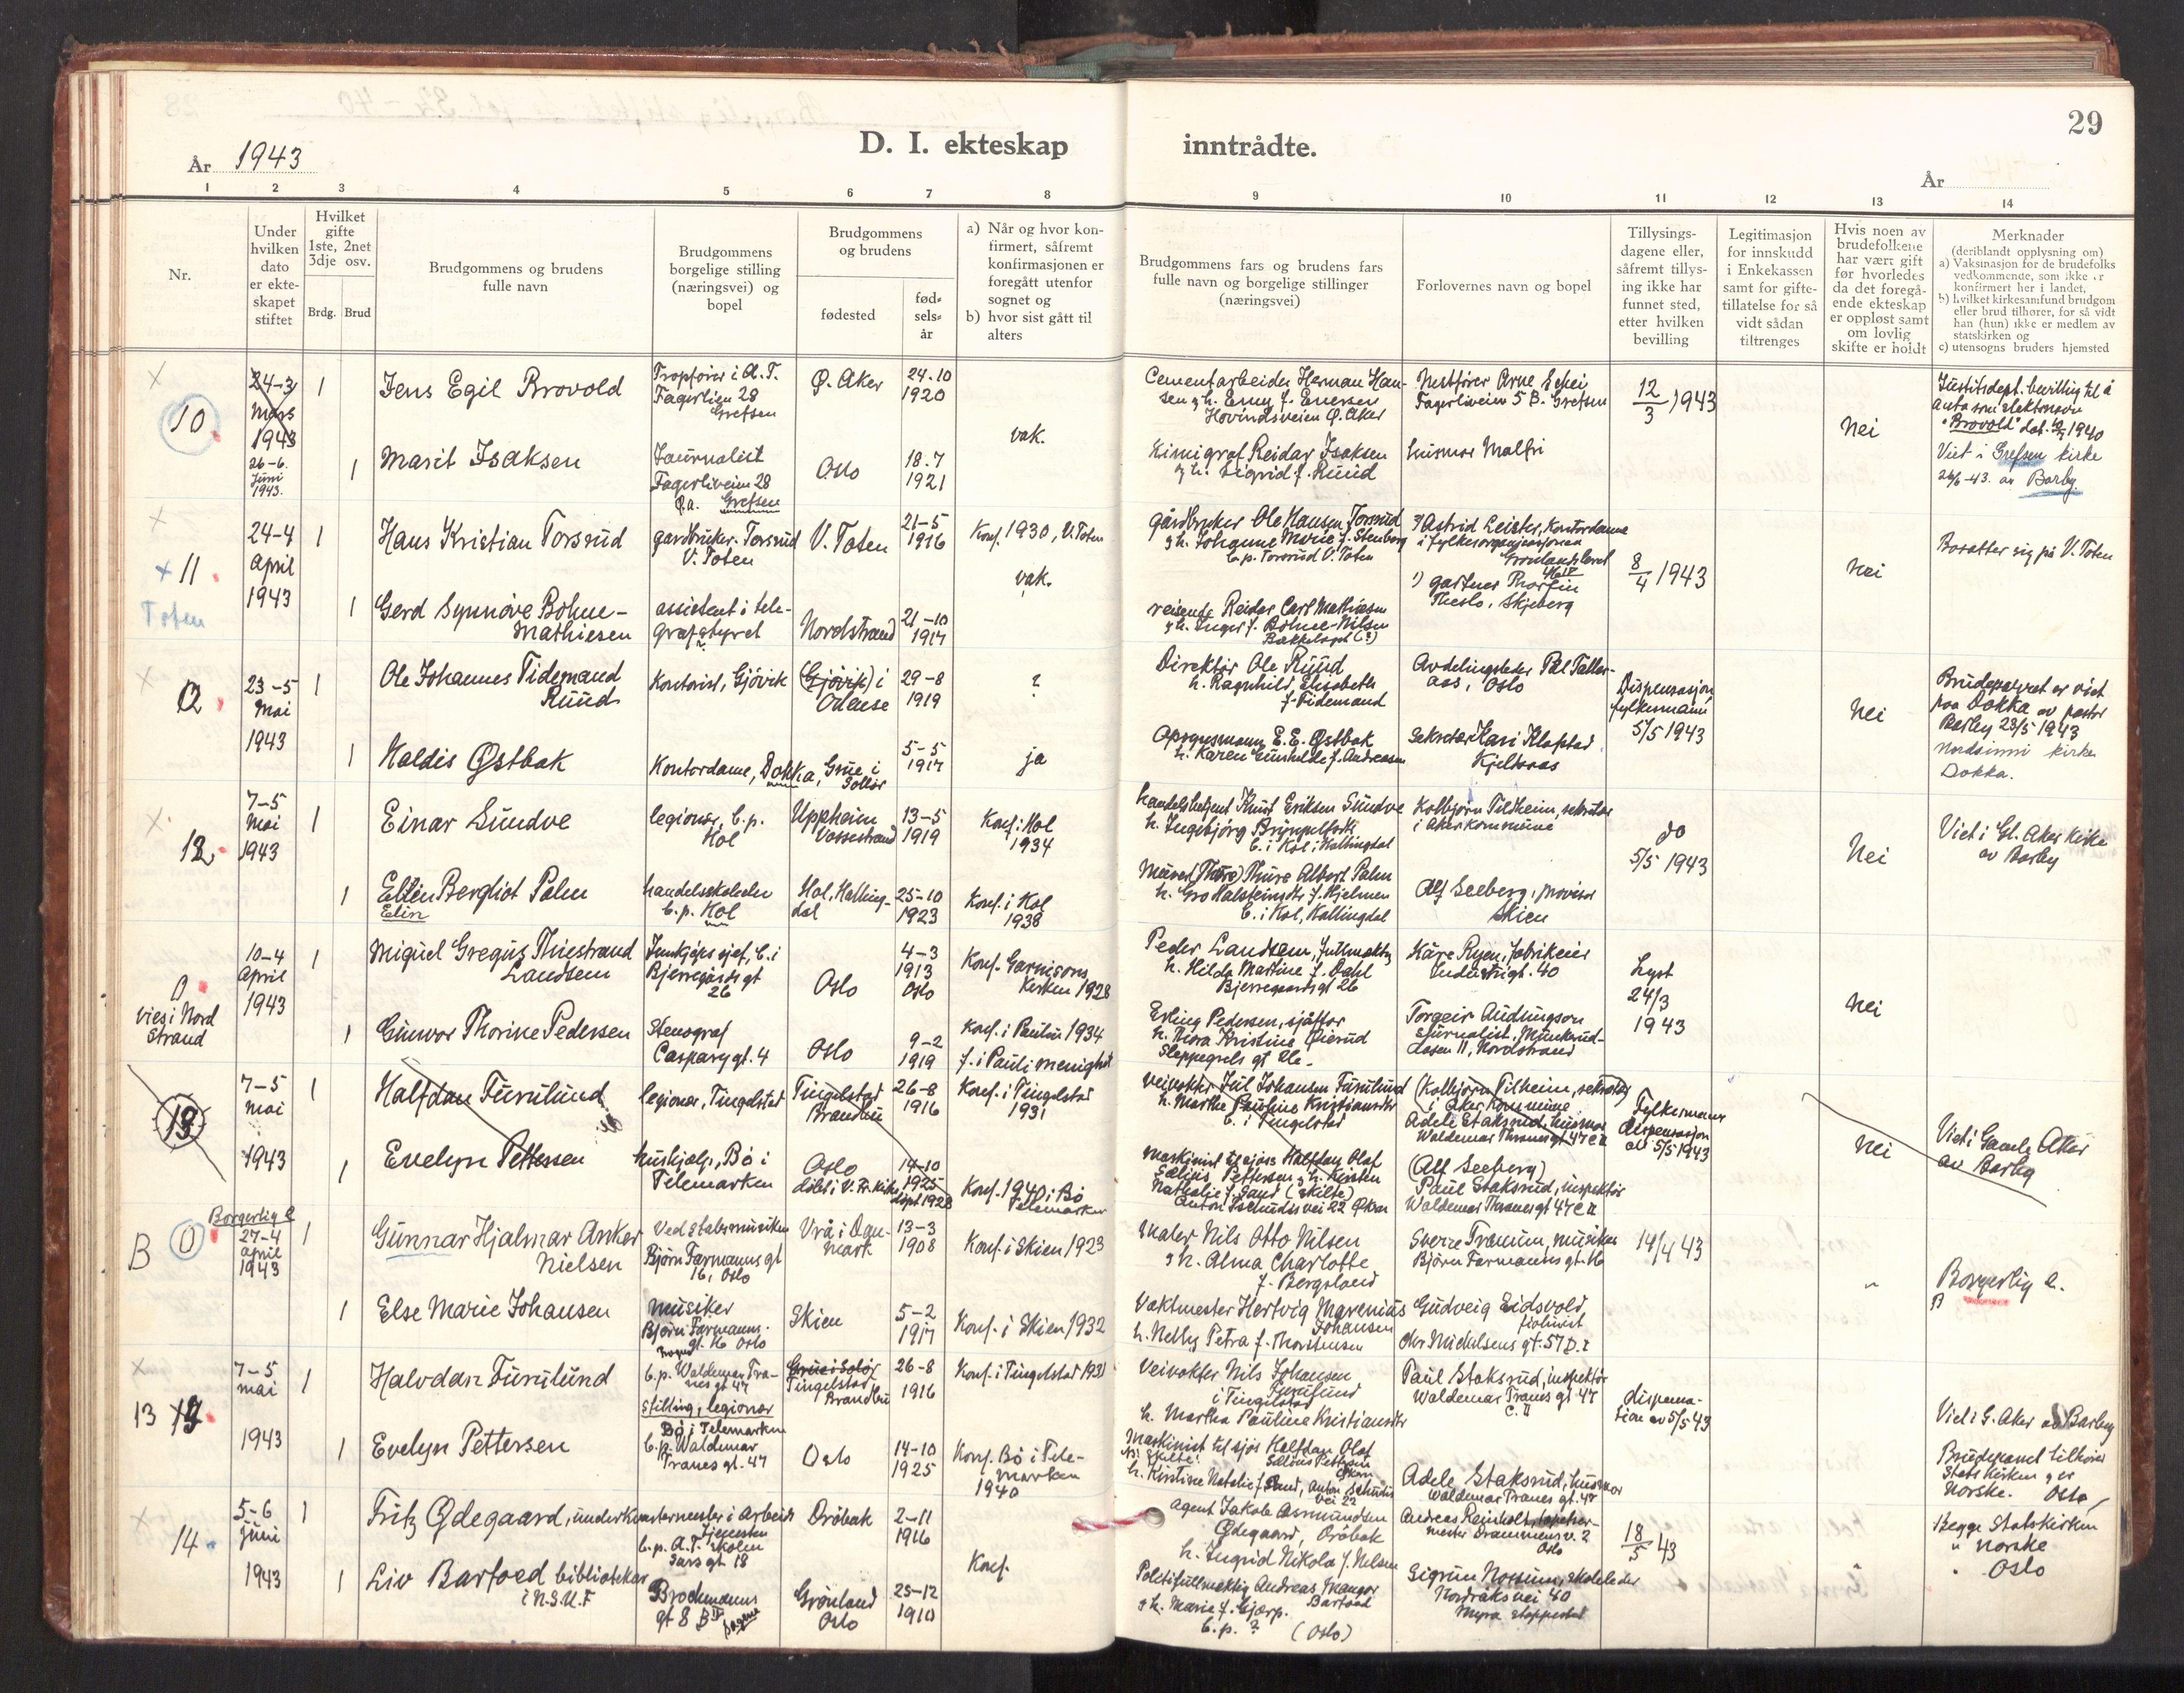 29
D. I. ekteskap inntrådte.
År 1943
År
1 2 3 4 5 6 7 8 9 10 11 12 13 14
Nr.
Under hvilken dato er ekteskapet stiftet
Hvilket gifte 1ste, 2net 3dje osv.
Brdg. Brud
Brudgommens og brudens fulle navn
Brudgommens borgelige stilling (næringsvei) og bopel
Brudgommens og brudens
fødested
fødselsår
a) Når og hvor konfirmert, såfremt konfirmasjonen er foregått utenfor sognet og
b) hvor sist gått til alters
Brudgommens fars og brudens fars fulle navn og borgelige stillinger (næringsvei)
Forlovernes navn og bopel
Tillysingsdagene eller, såfremt tillysing ikke har funnet sted, etter hvilken bevilling
Legitimasjon for innskudd i Enkekassen samt for giftetillatelse for så vidt sådan tiltrenges
Hvis noen av brudefolkene har vært gift før hvorledes da det foregående ekteskap er oppløst samt om lovlig skifte er holdt
Merknader
(deriblandt opplysning om)
a) Vaksinasjon for de brudefolks vedkommende, som ikke er konfirmert her i landet,
b) hvilket kirkesamfund brudgom eller brud tilhører, for så vidt han (hun) ikke er medlem av statskirken og
c) utensogns bruders hjemsted
10
24-3
Mars
1943
26-6.
Juni
1943.
1
Jens Egil Brovold
Troppfører i A.T.
Fagerlien 28
Grefsen
Ø. Aker
24-10
1920
vak.
Cementarbeider Herman Hansen
Hovindsveien Ø. Aker
Fagerliveien 5 B. Grefsen
12/3 1943
Nei
"Brovold"
Viet i Grefsen kirke
26/6-43. av Barby.
1
Marit Isaksen
Journalist
Fagerliveien 28
Ø.a. Grefsen
Oslo
18.7
1921
Kimigraf Reidar Isaksen
g.h. Sigrid f. Ruud
husmor Malfri
11
Toten
24-4
April
1943
1
Hans Kristian Torsrud
gardbruker. Torsrud
V. Toten
V. Toten
21-5
1916
Konf. 1930, V. Toten
vak.
gårdbruker Ole Hansen Torsrud
g.h. Johanne Marie f. Stenberg
b.p. Torsrud V. Toten
Astrid Leister, Kontordame
i fylkesorganisasjonen
1) gartner Thorfin
Theslo, Skjeberg
8/4 1943
Nei
Bosatter sig på V. Toten
1
Gerd Synnøve Bøhne-
Mathiesen
assistent i tele-
grafstyret
Nordstrand
21-10
1917
reisende Reidar Carl Mathiesen
g.h. Inger f. Bøhne-Nilsen
Bækkelaget (?)
12
23-5
Mai
1943
1
Ole Johannes Tidemand
Ruud
Kontorist, Gjøvik
(Gjøvik) i
Odense
29-8
1919
?
Direktør Ole Ruud
h. Ragnhild Elisabeth
f. Tidemand
Avdelingsleder Pål Taller-
aas, Oslo
Dispensasjon
fylkesmann
5/5 1943
Nei
Brudeparret er viet
paa Dokka av pastor
Barby 23/5 1943
Nordsinni kirke
Dokka.
1
Haldis Østbak
Kontordame, Dokka,
Grue i
Solør
5-5
1917
ja
E.E. Østbak
h. Karen Gunhilde f. Andreassen
Sekretær Kari Klopstad
Kjeltaas
12
7-5
Mai
1943
1
Einar Sundve
legionær, b.p.
Hol
Uppheim
Vossestrand
13-5
1919
Konf. i Hol
1934
handelsbetjent Knut Eriksen Sundve
h. Ingebjørg Brynjelfsdtr
b. i Hol i Hallingdal
Kolbjørn Tilheim, sekretær
i Aker kommune
do
5/5 1943
Nei
Viet i Gl. Aker Kirke
av Barby
1
Ellen Bergliot Palm
Elin
handelsskoleelev
b.p. Hol
Hol, Halling-
dal
25-10
1923
Konf. i Hol
1938
(Thure) Thure Albert Palm
h. Gro Halsteinsdtr f. Hjelmen
b. i Hol, Hallingdal
Alf Seeberg, provisor
Skien
0
vies i Nord
Strand
10-4
April
1943
1
Miguel Gregus Thiestrand
Landsem
Innkjøpssjef, b. i
Bjerregårds gt
26
Oslo
4-3
1913
Oslo
Konf. Garnisons
Kirken 1928
Peder Landsem, fullmektig
h. Hilda Martine f. Dahl
Bjerregaards gt 26
Kåre Ryen, fabrikeier
Industrigt. 40
Lyst
24/3
1943
Nei
1
Gunvor Thorine Pedersen
Stenograf
Casparygt. 4
Oslo
9-2
1919
Konf. i Paulus 1934
f. i Pauli menighet
Erling Pedersen, sjåfør
h. Thora Kristine Øierud
Sleppegrels gt
Torgeir Audunson
journalist, Munkerud-
åsen 11, Nordstrand
13
7-5
Mai
1943
1
Halfdan Furulund
legionær, Tingelstad
Tingelstad
Brandbu
26-8
1916
Konf. i Tingelstad
1931
Veivokter Jul Johansen Furulund
h. Marthe Pauline Kristiansdtr
b. i Tingelstad
(Kolbjørn Tilheim, sekretær
i Aker Kommune
Adele Staksrud, husmor
Waldemar Thranesgt 47 C II
Fylkesmanns
dispensasjon
av 5/5 1943
Nei
Viet i Gamle Aker
av Barby
1
Evelyn Pettersen
hushjelp, Bø i
Telemarken
Oslo
døbt i V. Fr. kirke
14-10
1925
døpt 1928
Konf. 1940 i Bø
Telemarken
Maskinist til sjøs Halfdan Olaf
Pettersen g.h. Kirsten
Nathalie f. Sand (skilte)
Anton Tschudis vei 22 Aker
(Alf Seeberg)
Paul Staksrud, inspektør
Waldemar Thranesgt 47 C II
B
0
Borgerlig e.
27-4
April
1943
1
Gunnar Hjalmar Anker
Nielsen
Ved stabsmusiken
Bjørn Farmanns gt
16, Oslo
Vrå i Dan-
mark
13-3
1908
Konf. i Skien 1923
Maler Nils Otto Nilsen
g.h. Alma Charlotte
f. Bergsland
Sverre Tramm, musiker
Bjørn Farmanns gt. 16
14/4 43
"
Borgerlig e.
B
1
Else Marie Johansen
Musiker
Bjørn Farmanns-
gt. 16 Oslo
Skien
5-2
1917
Konf. i Skien 1932
Vaktmester Hertvig Marenius
Johansen
h. Nelly Petra f. Thorstensen
Gudveig Eidsvold,
fiolinist
Chr Michelsens gt. 57 D.I
13
7-5
mai
1943
1
Halvdan Furulund
b.p. Waldemar Tra-
nes gt 47
stilling, legionær
Grue i Solør
Tingelstad
Brandbu
26-8
1916
Konf. i Tingelstad 1931
Veivokter Nils Johansen
Furulund
i Tingelstad
h. Martha Pauline Kristiansdtr
Paul Staksrud, inspektør
Waldemar Tranes gt 47
C. II
dispensa-
sion av 5/5 43
Viet i G. Aker av Barby
Brudeparret tilhører
Statskirken g er
Norske. Oslo
1
Evelyn Pettersen
Bø i Telemarken
b.p. Waldemar
Tranes gt. 47
Oslo
14-10
1925
Konf. Bø i Tele-
marken
1940
Maskinist til sjøs Halfdan Olaf
Pettersen
Skilte!
h. Kirstine Natalie f. Sand, Anton Schutis
vei 22
Adele Staksrud, husmor
Waldemar Tranes gt. 47
14
5-6
juni
1943
1
Fritz Ødegaard, underkvartermester i Arbeids
Tjenesten
b.p. A.T. Skolen
Sars gt. 18
Drøbak
2-11
1916
Konf.
Agent Jakob Asmundsen
Ødegaard, Drøbak
h. Ingrid Nikola f. Nilsen
Andreas Reinholt, tapetser-
mester Drammensv. 2
Oslo
18/5 43
Begge Statskirken
" norske
" Oslo
1
Liv Barfoed bibliotekar
i N.S.U.F
Brochmanns
gt 8 B
Sagene
Grønland
Oslo
25-12
1910
Politifullmektig Andreas Mangor
Barfoed
g.h. Marie f. Gjærp.
b.p. ? (Oslo)
Sigrun Nossum, skoleleder
Nordraks vei 40
Myra stoppested